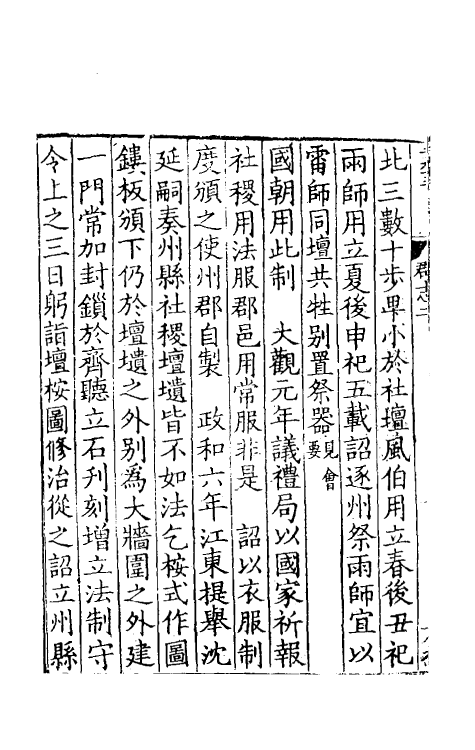 北三數十步卑小於社壇風伯用立春後丑祀
雨師用立夏後申祀五載詔逐州祭雨師宜以
雷師同壇共牲別置祭器見會要
國朝用此制　大觀元年議禮局以國家祈報
社稷用法服郡邑用常服非是　詔以衣服制
度頒之使州郡自製　政和六年江東提舉沈
延嗣奏州縣社稷壇壝皆不如法乞桉式作圖
鏤板頒下仍於壇壝之外別爲大牆圍之外建
一門常加封鎖於齊聽立石刋刻增立法制守
令上之三日躬詣壇桉圖修治從之詔立州縣
郡志二